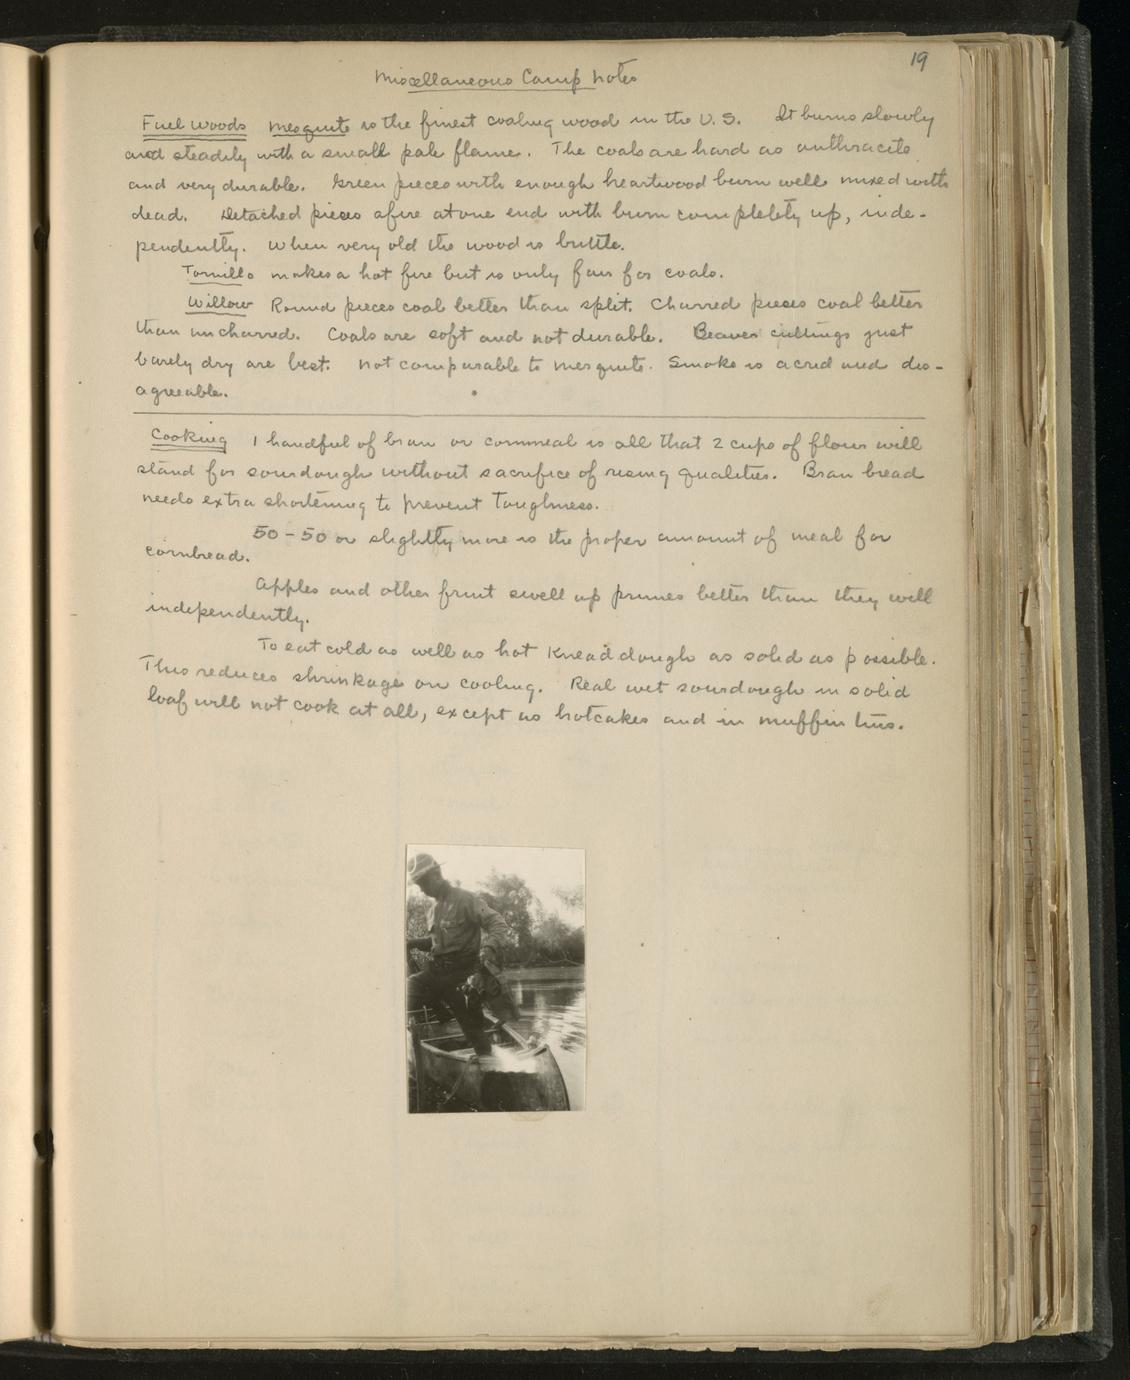 19
Miscellaneous Camp Notes
Fuel Woods Mesquite is the finest coaling wood in the U.S. It burns slowly
and steadily with a small pale flame. The coals are hard as anthracite
and very durable. Green pieces with enough heartwood burn well mixed with
dead. Detached pieces afire at one end with burn completely up, inde-
pendently. When very old the wood is brittle.
Tornillo makes a hot fire but is only fair for coals.
Willow Round pieces coal better than split. Charred pieces coal better
than uncharred. Coals are soft and not durable. Beaver cuttings just
barely dry are best. Not comparable to mesquite. Smoke is acrid and dis-
agreeable.
Cooking 1 handful of bran or cornmeal is all that 2 cups of flour will
stand for sourdough without sacrifice of rising qualities. Bran bread
needs extra shortening to prevent toughness.
50-50 or slightly more is the proper amount of meal for
cornbread.
Apples and other fruit swell up prunes better than they will
independently.
To eat cold as well as hot knead dough as solid as possible.
This reduces shrinkage on cooling. Real wet sourdough in solid
loaf will not cook at all, except as hotcakes and in muffin tins.